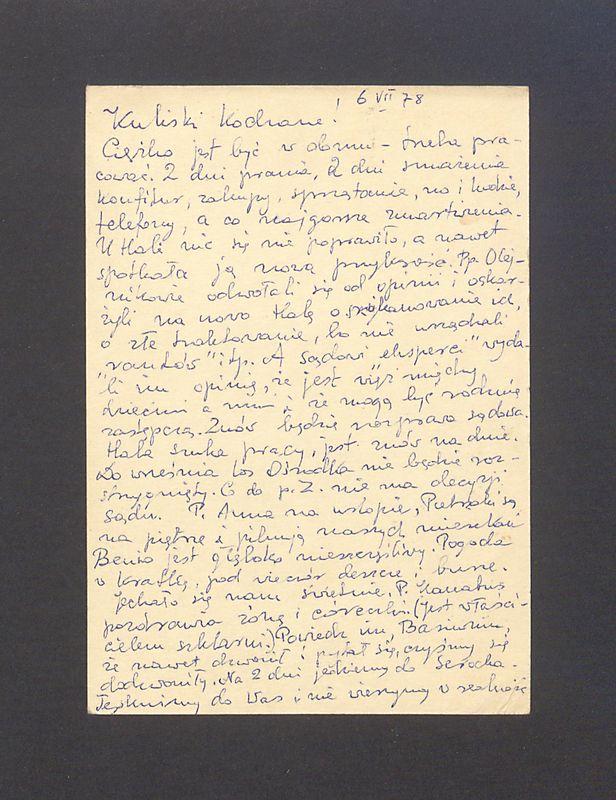 6 VII 78
Kuliski Kochane!
Ciężko jest być w domu - trzeba pra-
cować. 2 dni prania, 2 dni smażenia
konfitur, zakupy, sprzątanie, no i ludzie,
telefony, a co najgorsze zmartwienia.
U Hali nic się nie poprawiło, a nawet
spotkała ją nowa przykrość. Pp. Olej-
nikowie odwołali się od opinii i oskar-
żyli na nowo Halę o szykanowanie ich,
o złe traktowanie, bo nie urządzali
randów" itp. A Sądowi eksperci" wyda-
"li im opinię, że jest więź między
dziećmi a nimi i że mogą być rodziną
zastępczą. Znów będzie rozprawa sądowa.
Hala szuka pracy, jest znów na dnie.
Do września los Ośrodka nie będzie roz-
strzygnięty. Co do p. Z. nie ma decyzji
sądu. P. Anna na urlopie, Pietraki są
na piętrze i pilnują naszych mieszkań
Benio jest głęboko nieszczęśliwy. Pogoda
w kratkę, pod wieczór deszcze i burze.
Jechało się nam świetnie. P.
pozdrawia żonę i córeczki. (jest właści-
cielem szklarni) Powiedz im, Basiuniu,
że nawet dzwonił i pytał się, czyśmy się
dodzwoniły. Na 2 dni jedziemy do Serocka.
Tęsknimy do Was i nie wierzymy w realność